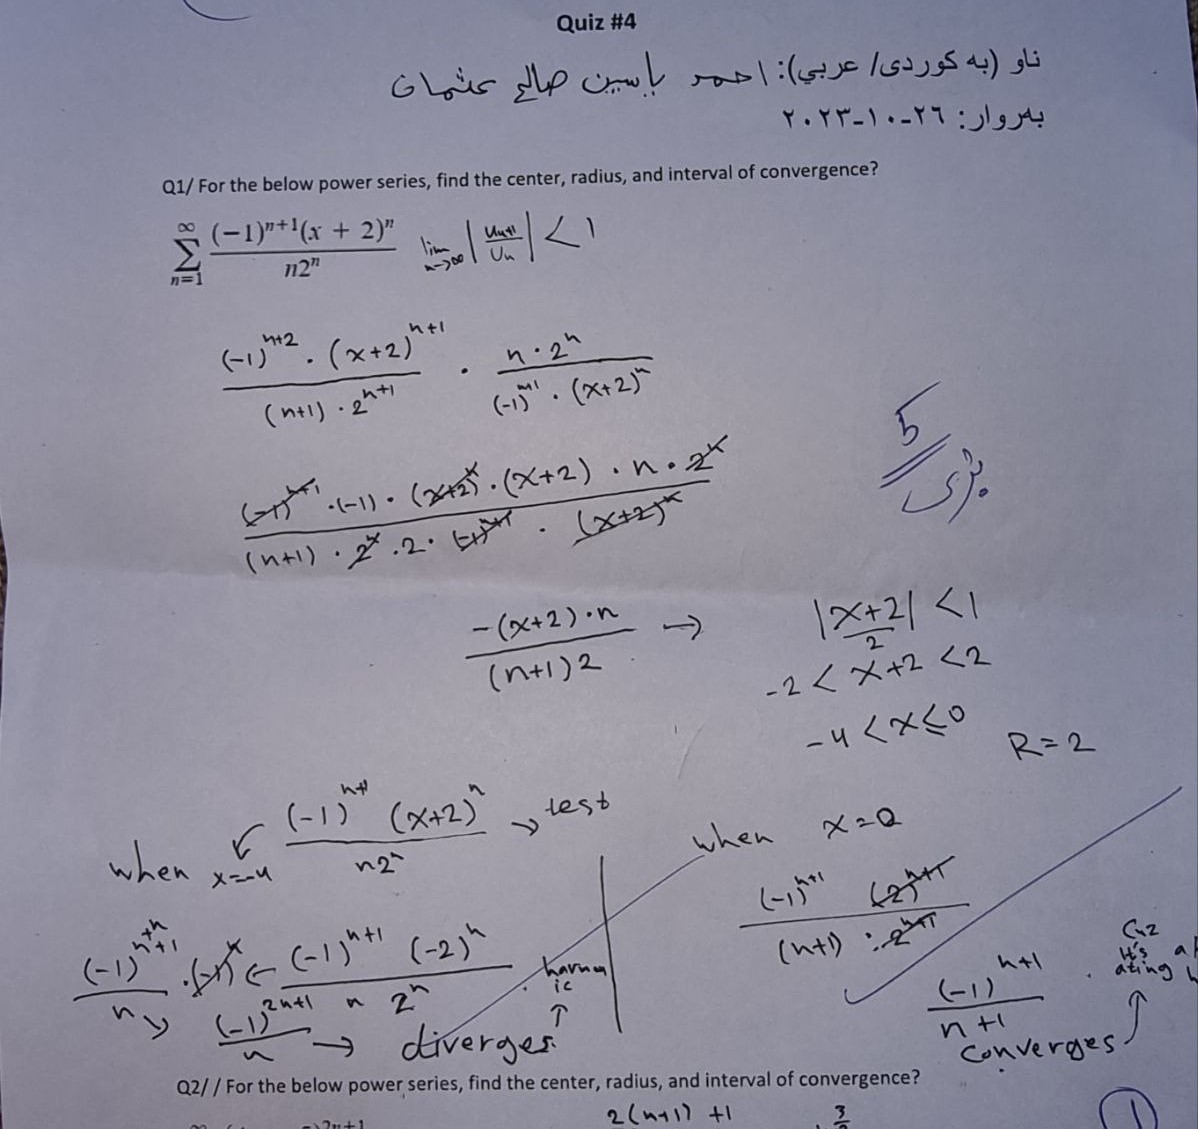 Quiz #4
ناو (به كوردی/ عربي): احمد ياسين صالح عثمان
بەروار: ٢٦-١٠-٢٠٢٣
Q1/ For the below power series, find the center, radius, and interval of convergence?
∞ Σ n=1 (-1)^{n+1}(x + 2)^n / n2^n lim n→∞ |U_{n+1} / U_n| < 1
(-1)^{n+2} · (x+2)^{n+1} / (n+1) · 2^{n+1} · n · 2^n / (-1)^{n+1} · (x+2)^n
5
(-1)^{n+1} · (-1) · (x+2)^n · (x+2) · n · 2^n / (n+1) · 2^n · 2 · (-1)^{n+1} · (x+2)^n
-(x+2) · n / (n+1) 2 → |x+2 / 2| < 1
-2 < x+2 < 2
-4 < x ≤ 0
R = 2
(-1)^{n+1} (x+2)^n / n2^n → test
when x=-4
(-1)^{n+n+1} / n · (-1)^n ← (-1)^{n+1} (-2)^n / n 2^n
(-1)^{2n+1} / n → diverges
harmonic
when x=0
(-1)^{n+1} (2)^{n+1} / (n+1) · 2^{n+1}
(-1)^{n+1} / n+1
converges
Cuz
It's
Q2// For the below power series, find the center, radius, and interval of convergence?
2(n+1) +1